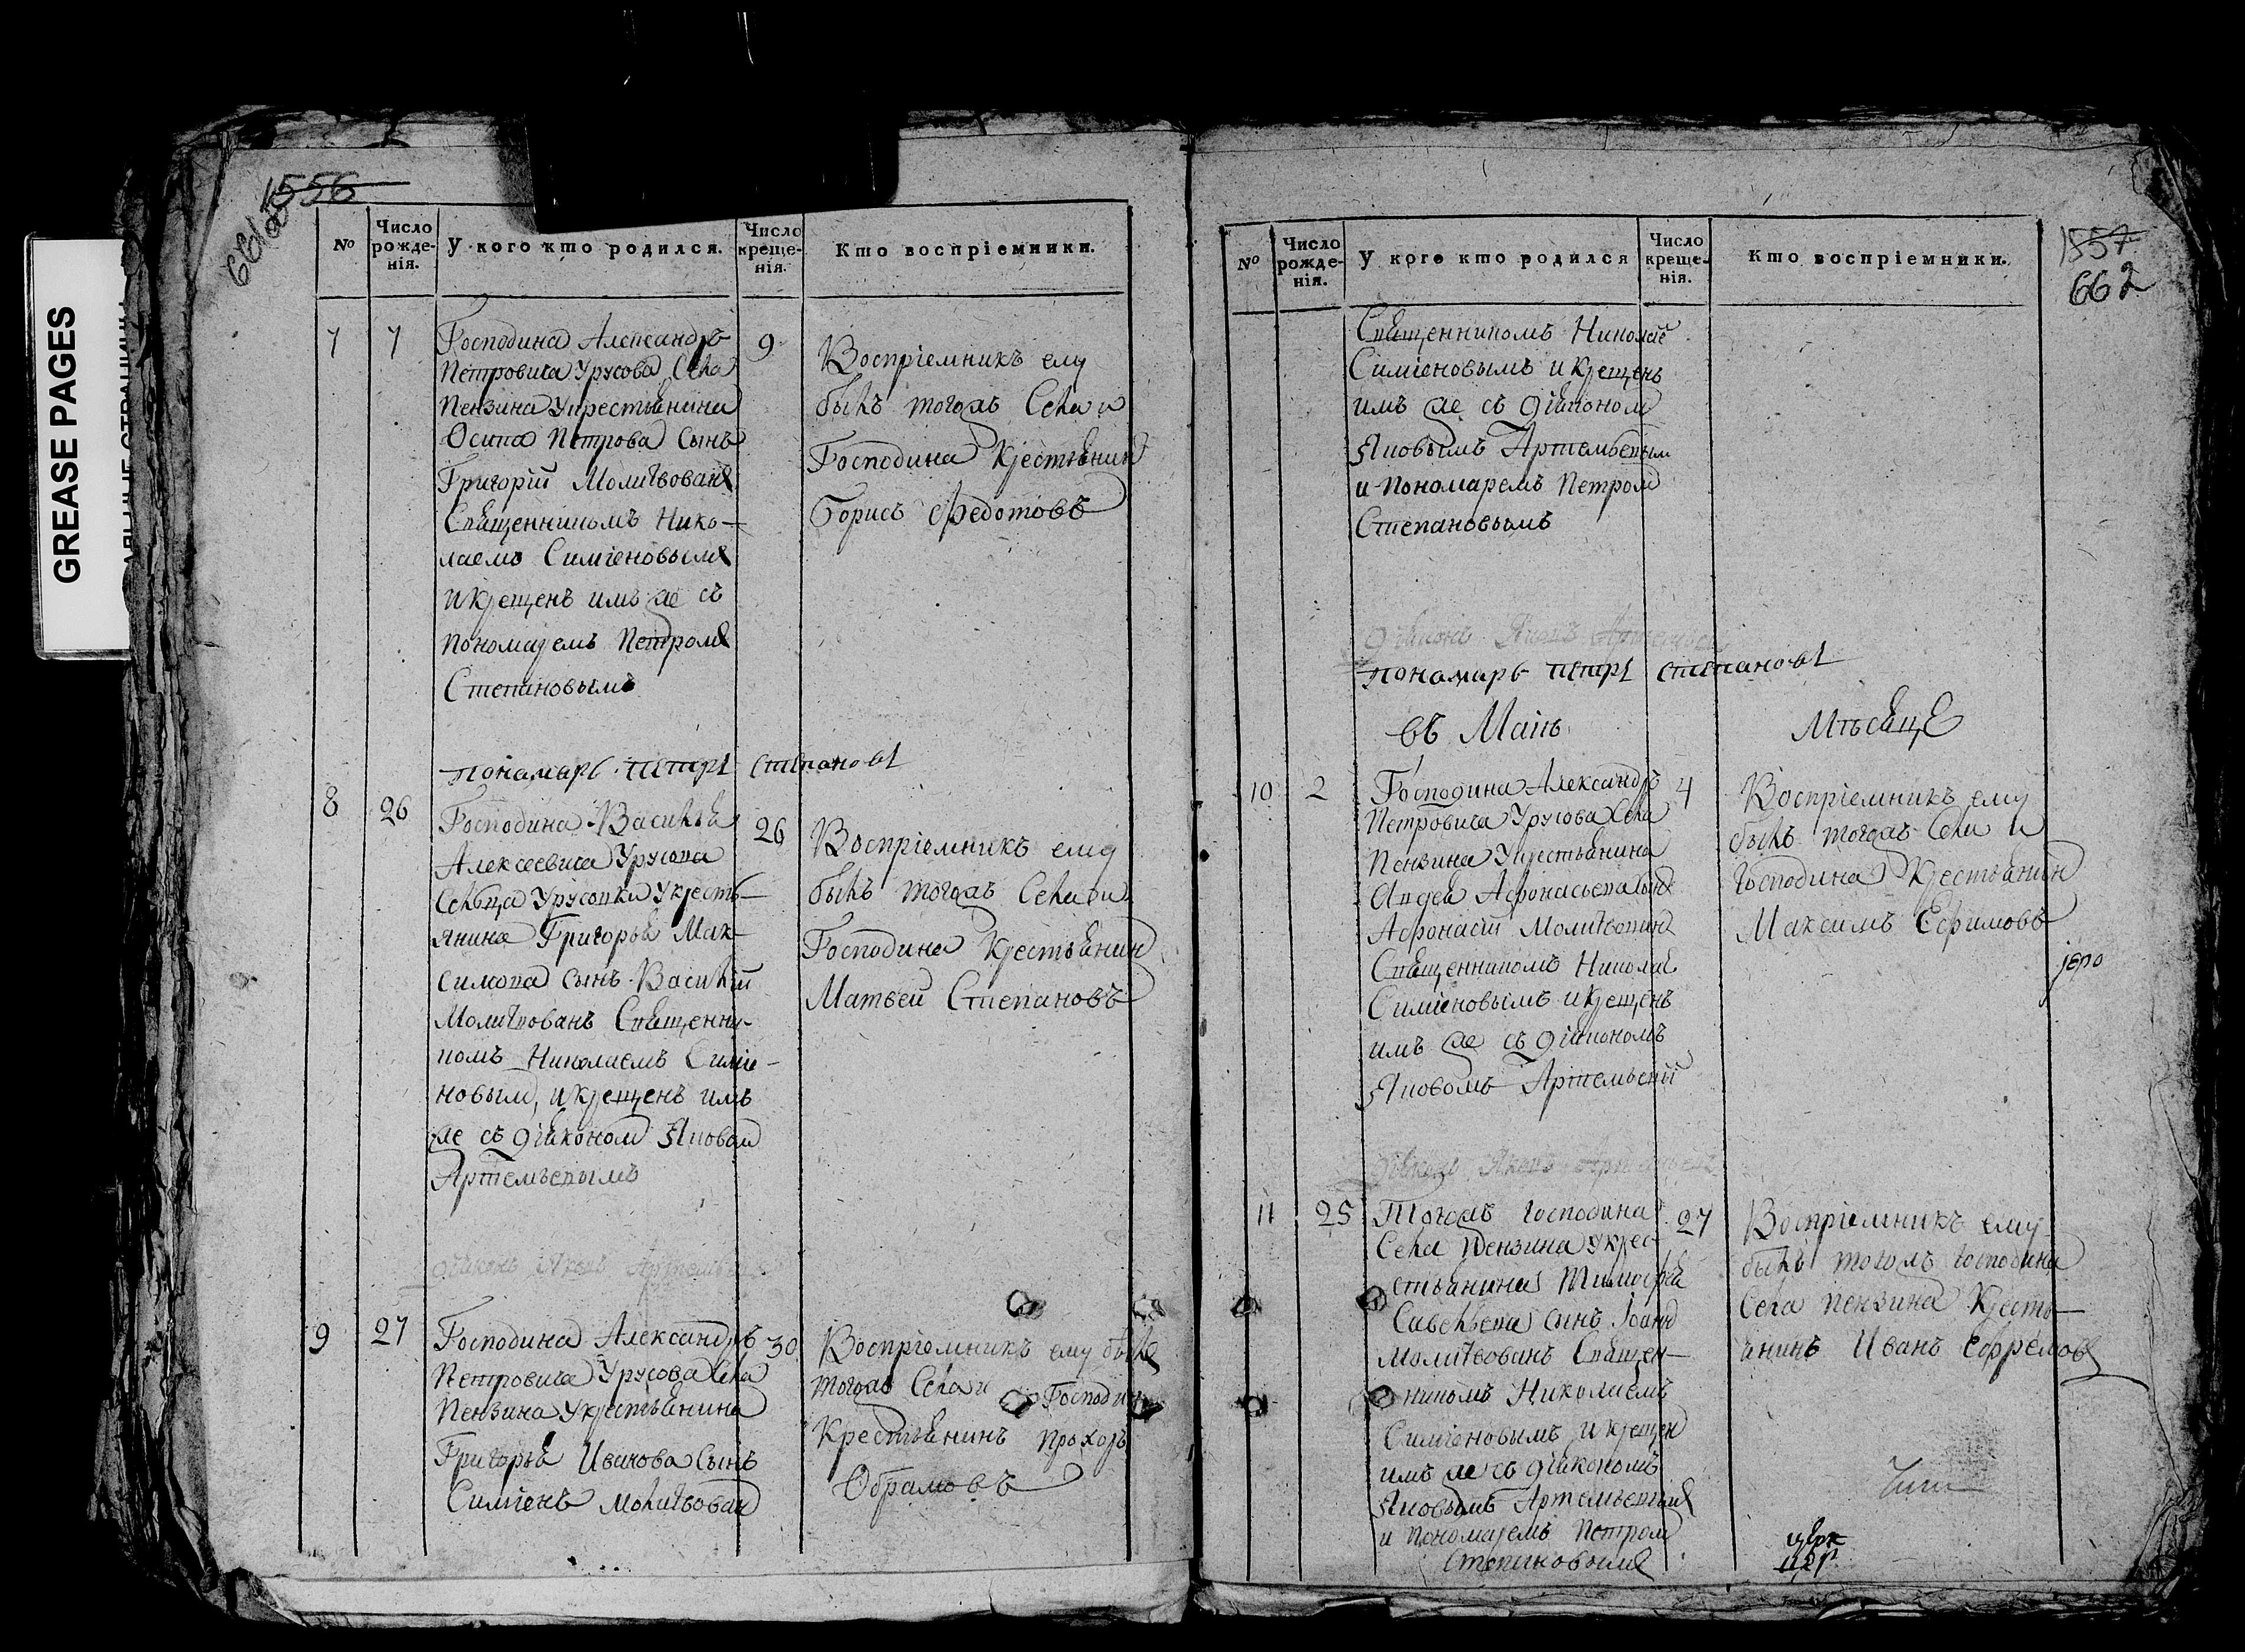 GREASE PAGES
1556
661об
№
Число рожденія.
У кого кто родился.
Число крещенія.
Кто воспріемники.
7
7
Господина Александръ
Петровича Урусова Села
Пензина Укрестьянина
Осипа Петрова Сынъ
Григорій Молитвованъ
Священникомъ Нико-
лаемъ Симіеновымъ
и Крещенъ имъ же съ
пономаремъ Петромъ
Степановымъ
9
Воспріемникъ ему
былъ тогожъ Села и
Господина Крестьянинъ
Борисъ Федотовъ
понамарь петръ степановъ
8
26
Господина Василья
Алексеевича Урусова
Сельца Урусовки Укресть-
янина Григорья Мак-
симова сынъ Василій
Молитвованъ Священни-
комъ Николаемъ Симіе-
новым, и Крещенъ имъ
же съ діяконом Яковом
Артемьевымъ
26
Воспріемникъ ему
былъ тогожъ Села и
Господина Крестьянин
Матвей Степановъ
діяконъ Яковъ Артемьевъ
9
27
Господина Александръ
Петровича Урусова Села
Пензина Укрестьянина
Григорья Иванова Сынъ
Симіенъ молитвован
30
Воспріемникъ ему былъ
тогожъ Села и Господин
Крестьянинъ Прохоръ
Обрамовъ
1557
662
№
Число рожденія.
У кого кто родился
Число крещенія.
Кто воспріемники.
Священникомъ Николае
Симіеновымъ и Крещенъ
имъ же съ діяконом
Яковымъ Артемьевым
и Пономаремъ Петром
Степановымъ
діяконъ Яковъ Артемьевъ
понамарь петръ степановъ
въ Маіѣ
Мѣсяцѣ
10
2
Господина Александръ
Петровича Урусова Села
Пензина Укрестьянина
Авдея Афонасьева Сынъ
Афонасій Молитвованъ
Священникомъ Николае
Симіеновымъ и Крещенъ
имъ же съ діякономъ
Яковомъ Артемьевы
4
Воспріемникъ ему
былъ тогожъ Села и
Господина Крестьянин
Максимъ Ефимовъ
іеро
діяконъ Яковъ Артемьевъ
11
25
Тогожъ господина
Села Пензина Укрес-
стьянина Тимофея
Савельева сынъ Іоанъ
Молитвованъ Священ-
никомъ Николаемъ
Симіеновымъ и крещен
имъ же съ діякономъ
Яковымъ Артемьевымъ
и пономаремъ Петром
Степановымъ
27
Воспріемникъ ему
былъ тогожъ господина
Села Пензина Кресть-
янинъ Иванъ Ефремовъ